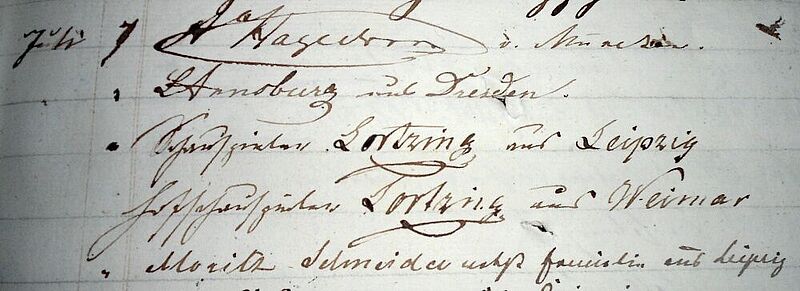 Juli 7 A Hagedorn v. München.
" L Arnsburg aus Dresden.
" Schauspieler Lortzing aus Leipzig
Hofschauspieler Lortzing aus Weimar
" Moritz Schneider nebst Familie aus Leipzig